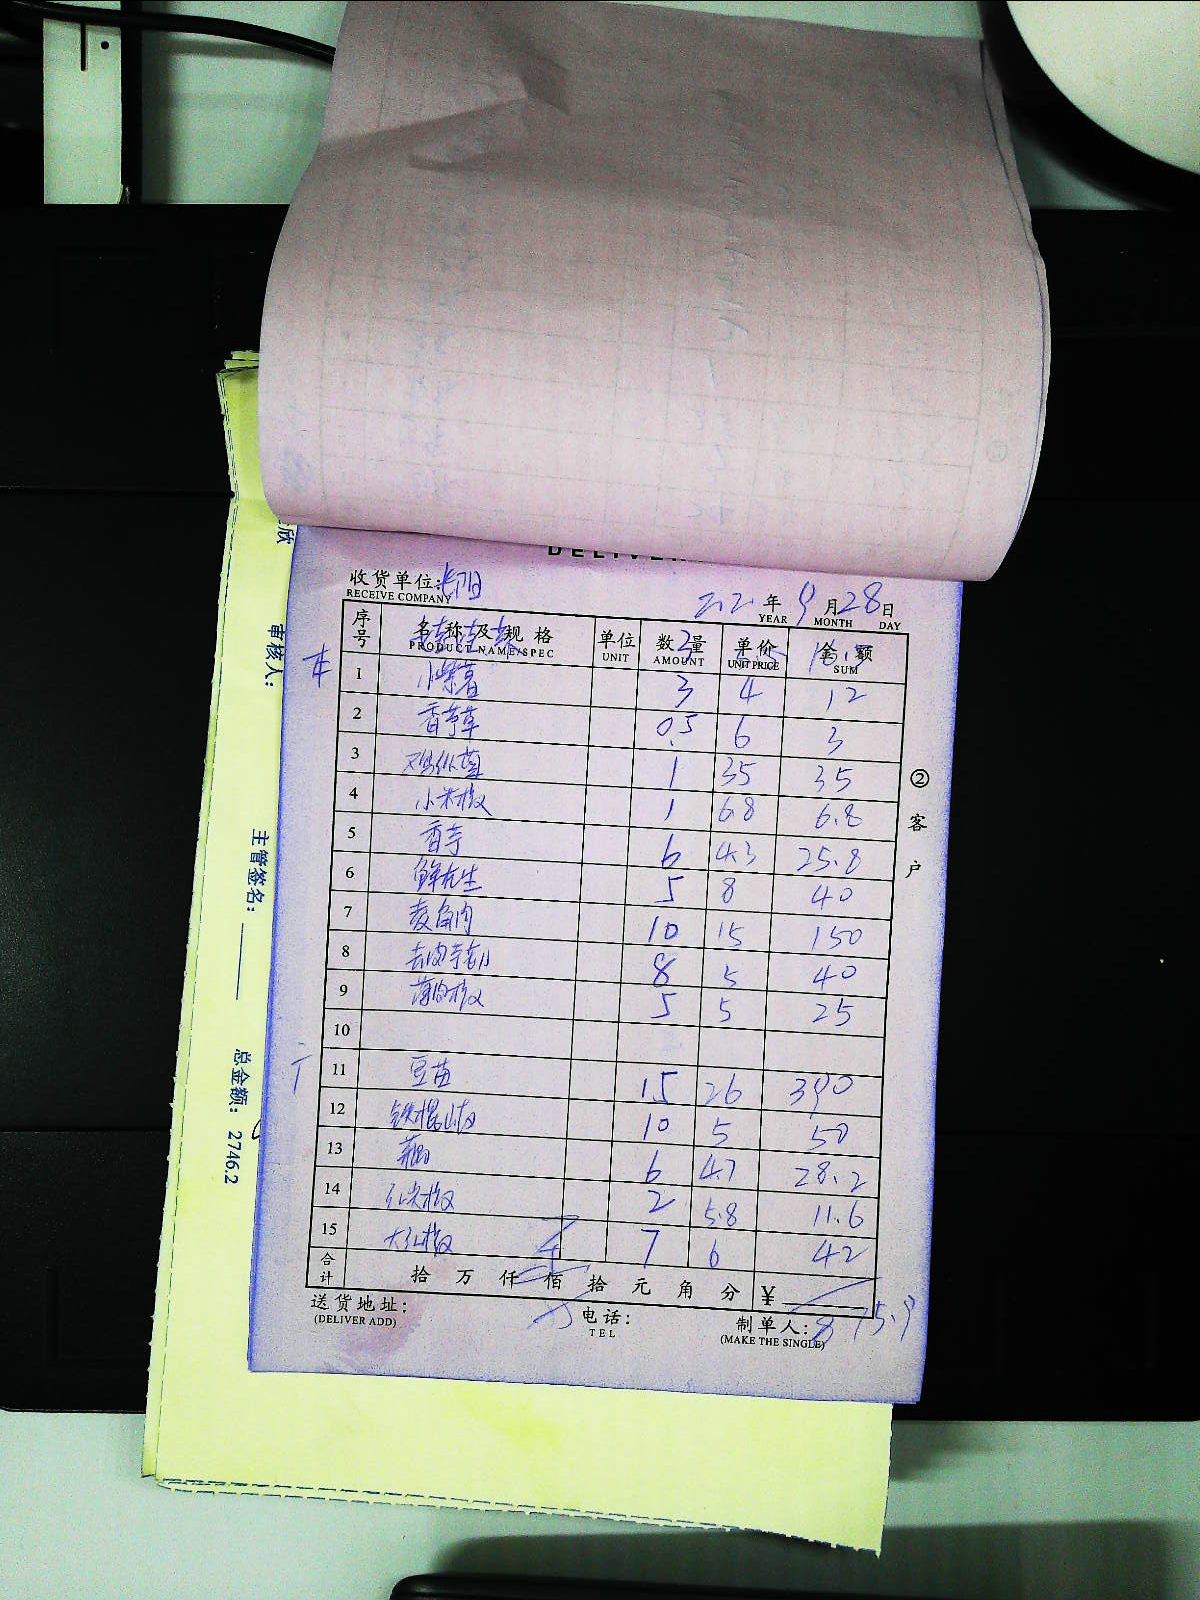 DELIVER
收货单位:
RECEIVE COMPANY
22 年 9 月 28 日
YEAR MONTH DAY
序号 名称及规格 单位 数量 单价 金额
PRODUCT NAME/SPEC UNIT AMOUNT UNIT PRICE SUM
3
1 小紫薯 3 4 12
2 香茅草 0.5 6 3
3 鸡枞菌 1 35 35
4 小米椒 1 6.8 6.8
5 香芋 6 4.3 25.8
6 鲜花生 5 8 40
7 菱角肉 10 15 150
8 8 5 40
9 薄肉椒 5 5 25
10
11 豆苗 15 26 390
12 铁棍山药 10 5 50
13 藕 6 4.7 28.2
14 红尖椒 2 5.8 11.6
15 大红椒 7 6 42
合计 拾 万 仟 佰 拾 元 角 分 ¥
875.9
送货地址:
(DELIVER ADD)
电话:
TEL
制单人:
(MAKE THE SINGLE)
② 客户
欣
审核人:
主管签名:
总金额: 2746.2